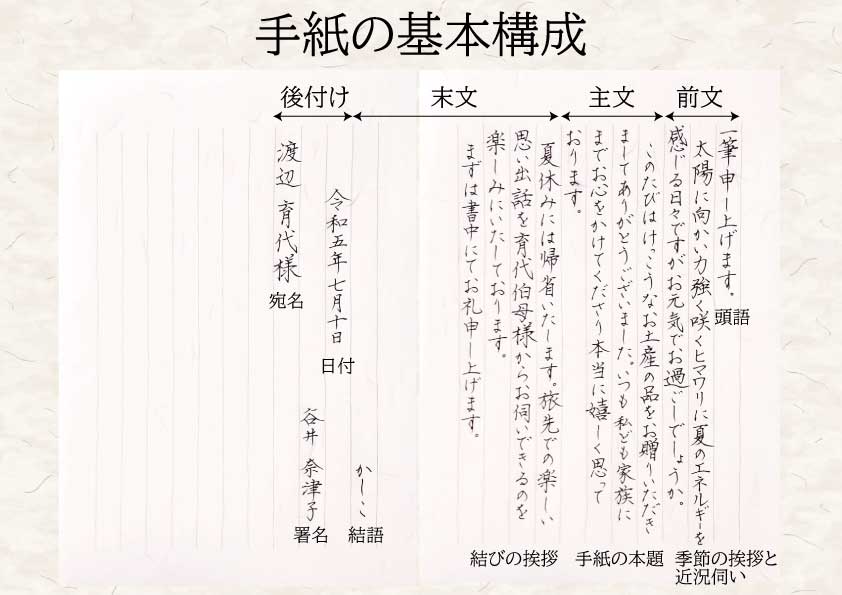 手紙の基本構成
前文
主文
末文
後付け
一筆申し上げます。
頭語
太陽に向かい力強く咲くヒマワリに夏のエネルギーを
感じる日々ですがお元気でお過ごしでしょうか。
季節の挨拶と
近況伺い
このたびはけっこうなお土産の品をお贈りいただき
ましてありがとうございました。いつも私ども家族に
までお心をかけてくださり本当に嬉しく思って
おります。
手紙の本題
夏休みには帰省いたします。旅先での楽しい
思い出話を育代伯母様からお伺いできるのを
楽しみにいたしております。
まずは書中にてお礼申し上げます。
結びの挨拶
かしこ
結語
令和五年七月十日
日付
谷井 奈津子
署名
渡辺 育代様
宛名